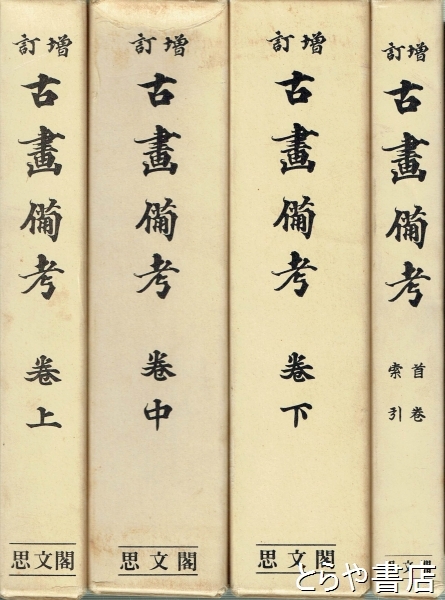 増訂
古畫備考
卷上
思文閣
増訂
古畫備考
卷中
思文閣
増訂
古畫備考
卷下
思文閣
増訂
古畫備考
首卷
索引
思文閣
とらや書店